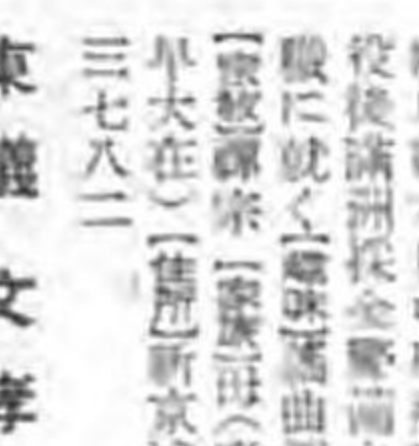 役後滿洲採金
職に就く【趣味】謠曲
【宗教】禪宗【家族】母（
早大在）【住所】新京
三七八二
東義文孝